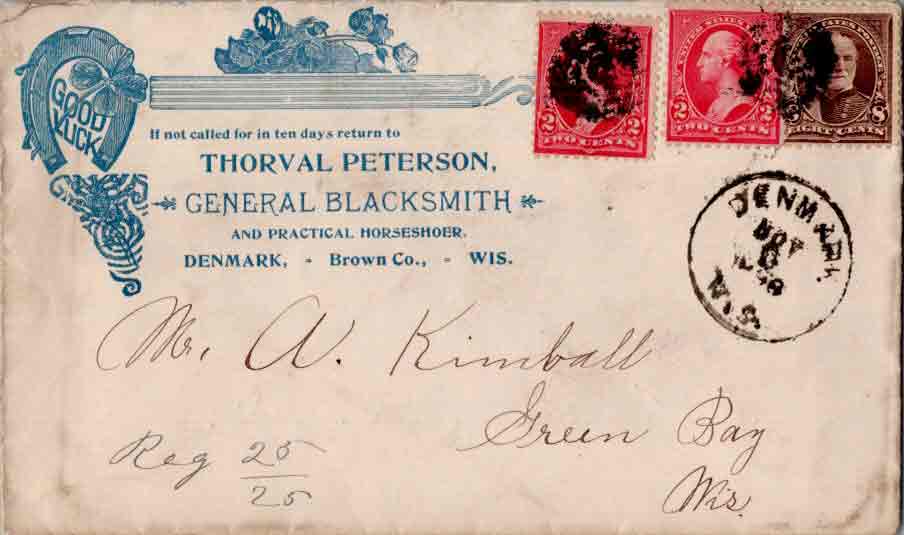 GOOD
LUCK
If not called for in ten days return to
THORVAL PETERSON,
GENERAL BLACKSMITH
AND PRACTICAL HORSESHOER.
DENMARK, Brown Co., WIS.
2 2
TWO CENTS
UNITED STATES
2 2
TWO CENTS
8
EIGHT CENTS
DENMARK.
NOV
WIS
Mr. A. Kimball
Green Bay
Wis.
Reg 25
25